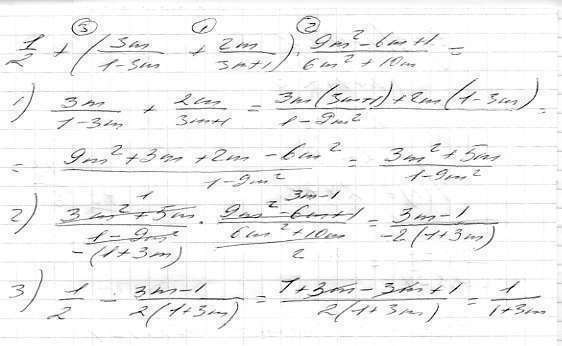 ③ ① ②
1/2 + (3m/(1-3m) + 2m/(3m+1)) · (9m²-6m+1)/(6m²+10m) =
1) 3m/(1-3m) + 2m/(3m+1) = (3m(3m+1)+2m(1-3m))/(1-9m²) =
= (9m²+3m+2m-6m²)/(1-9m²) = (3m²+5m)/(1-9m²)
1 3m-1
2) (3m²+5m)/(1-9m²) · (9m²-6m+1)/(6m²+10m) = (3m-1)/(-2(1+3m))
-(1+3m) 2
3) 1/2 - (3m-1)/(2(1+3m)) = (1+3m-3m+1)/(2(1+3m)) = 1/(1+3m)